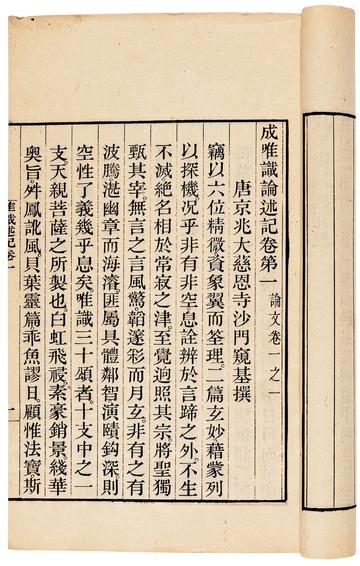 成唯識論述記卷第一 論文卷一之一
唐京兆大慈恩寺沙門窺基撰
竊以六位精微資象翼而筌理。二篇玄妙藉蒙列
以探機。況乎非有非空息詮辨於言蹄之外。不生
不滅絶名相於常寂之津。至覺迥照其宗。將聖獨
甄其宰。無言之言風驚韜邃彩而月玄。非有之有
波騰湛幽章而海濬。匪屬具體鄰智演賾鉤深則
空性了義幾乎息矣。唯識三十頌者。十支中之一
支。天親菩薩之所製也。白虹飛祲。素豪銷景。綫華
奧旨舛鳳訛風。貝葉靈篇乖魚謬日。顧惟法寶斯
唯識述記卷一
一